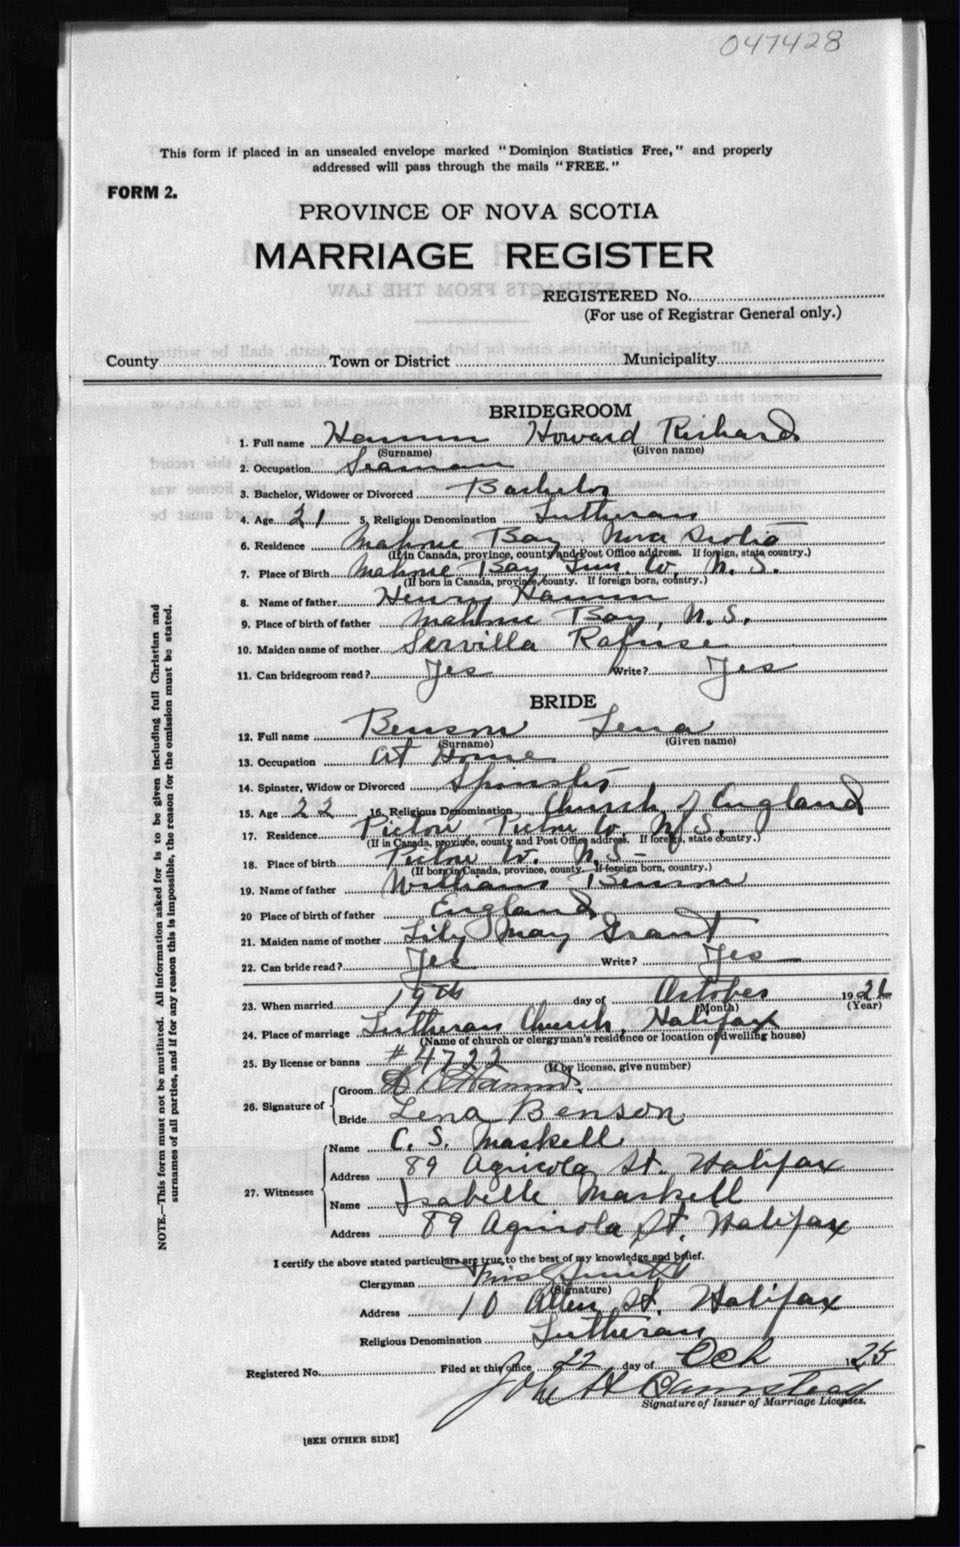 047428
This form if placed in an unsealed envelope marked "Dominion Statistics Free," and properly
addressed will pass through the mails "FREE."
FORM 2.
PROVINCE OF NOVA SCOTIA
MARRIAGE REGISTER
REGISTERED No.
(For use of Registrar General only.)
County Town or District Municipality
BRIDEGROOM
1. Full name Hamm Howard Richard
(Surname) (Given name)
2. Occupation Seaman
3. Bachelor, Widower or Divorced Bachelor
4. Age 21 5. Religious Denomination Lutheran
6. Residence Mahone Bay Nova Scotia
(If in Canada, province, county and Post Office address. If foreign, state country.)
7. Place of Birth Mahone Bay Lun. Co. N. S.
(If born in Canada, province, county. If foreign born, country.)
8. Name of father Henry Hamm
9. Place of birth of father Mahone Bay, N. S.
10. Maiden name of mother Servilla Rafuse
11. Can bridegroom read? Yes Write? Yes
BRIDE
12. Full name Benson Lena
(Surname) (Given name)
13. Occupation At Home
14. Spinster, Widow or Divorced Spinster
15. Age 22 16. Religious Denomination Church of England
17. Residence Pictou Pictou Co. N. S.
(If in Canada, province, county and Post Office address. If foreign, state country.)
18. Place of birth Pictou Co. N. S.
(If born in Canada, province, county. If foreign born, country.)
19. Name of father William Benson
20 Place of birth of father England
21. Maiden name of mother Lily May Grant
22. Can bride read? Yes Write? Yes
23. When married 19th day of October 19
(Month) (Year)
24. Place of marriage Lutheran Church, Halifax
(Name of church or clergyman's residence or location of dwelling house)
25. By license or banns # 4722
(If by license, give number)
26. Signature of Groom H R Hamm.
Bride Lena Benson
27. Witnesses Name C. S. Maskell
Address 89 Agricola St. Halifax
Name Isabelle Maskell
Address 89 Agricola St. Halifax
I certify the above stated particulars are true, to the best of my knowledge and belief.
Clergyman Smith
(Signature)
Address 10 Allen St. Halifax
Religious Denomination Lutheran
Registered No. Filed at this office 22 day of Oct 1925
John H
Signature of Issuer of Marriage Licenses.
[SEE OTHER SIDE]
NOTE.—This form must not be mutilated. All information asked for is to be given including full Christian and
surnames of all parties, and if for any reason this is impossible, the reason for the omission must be stated.